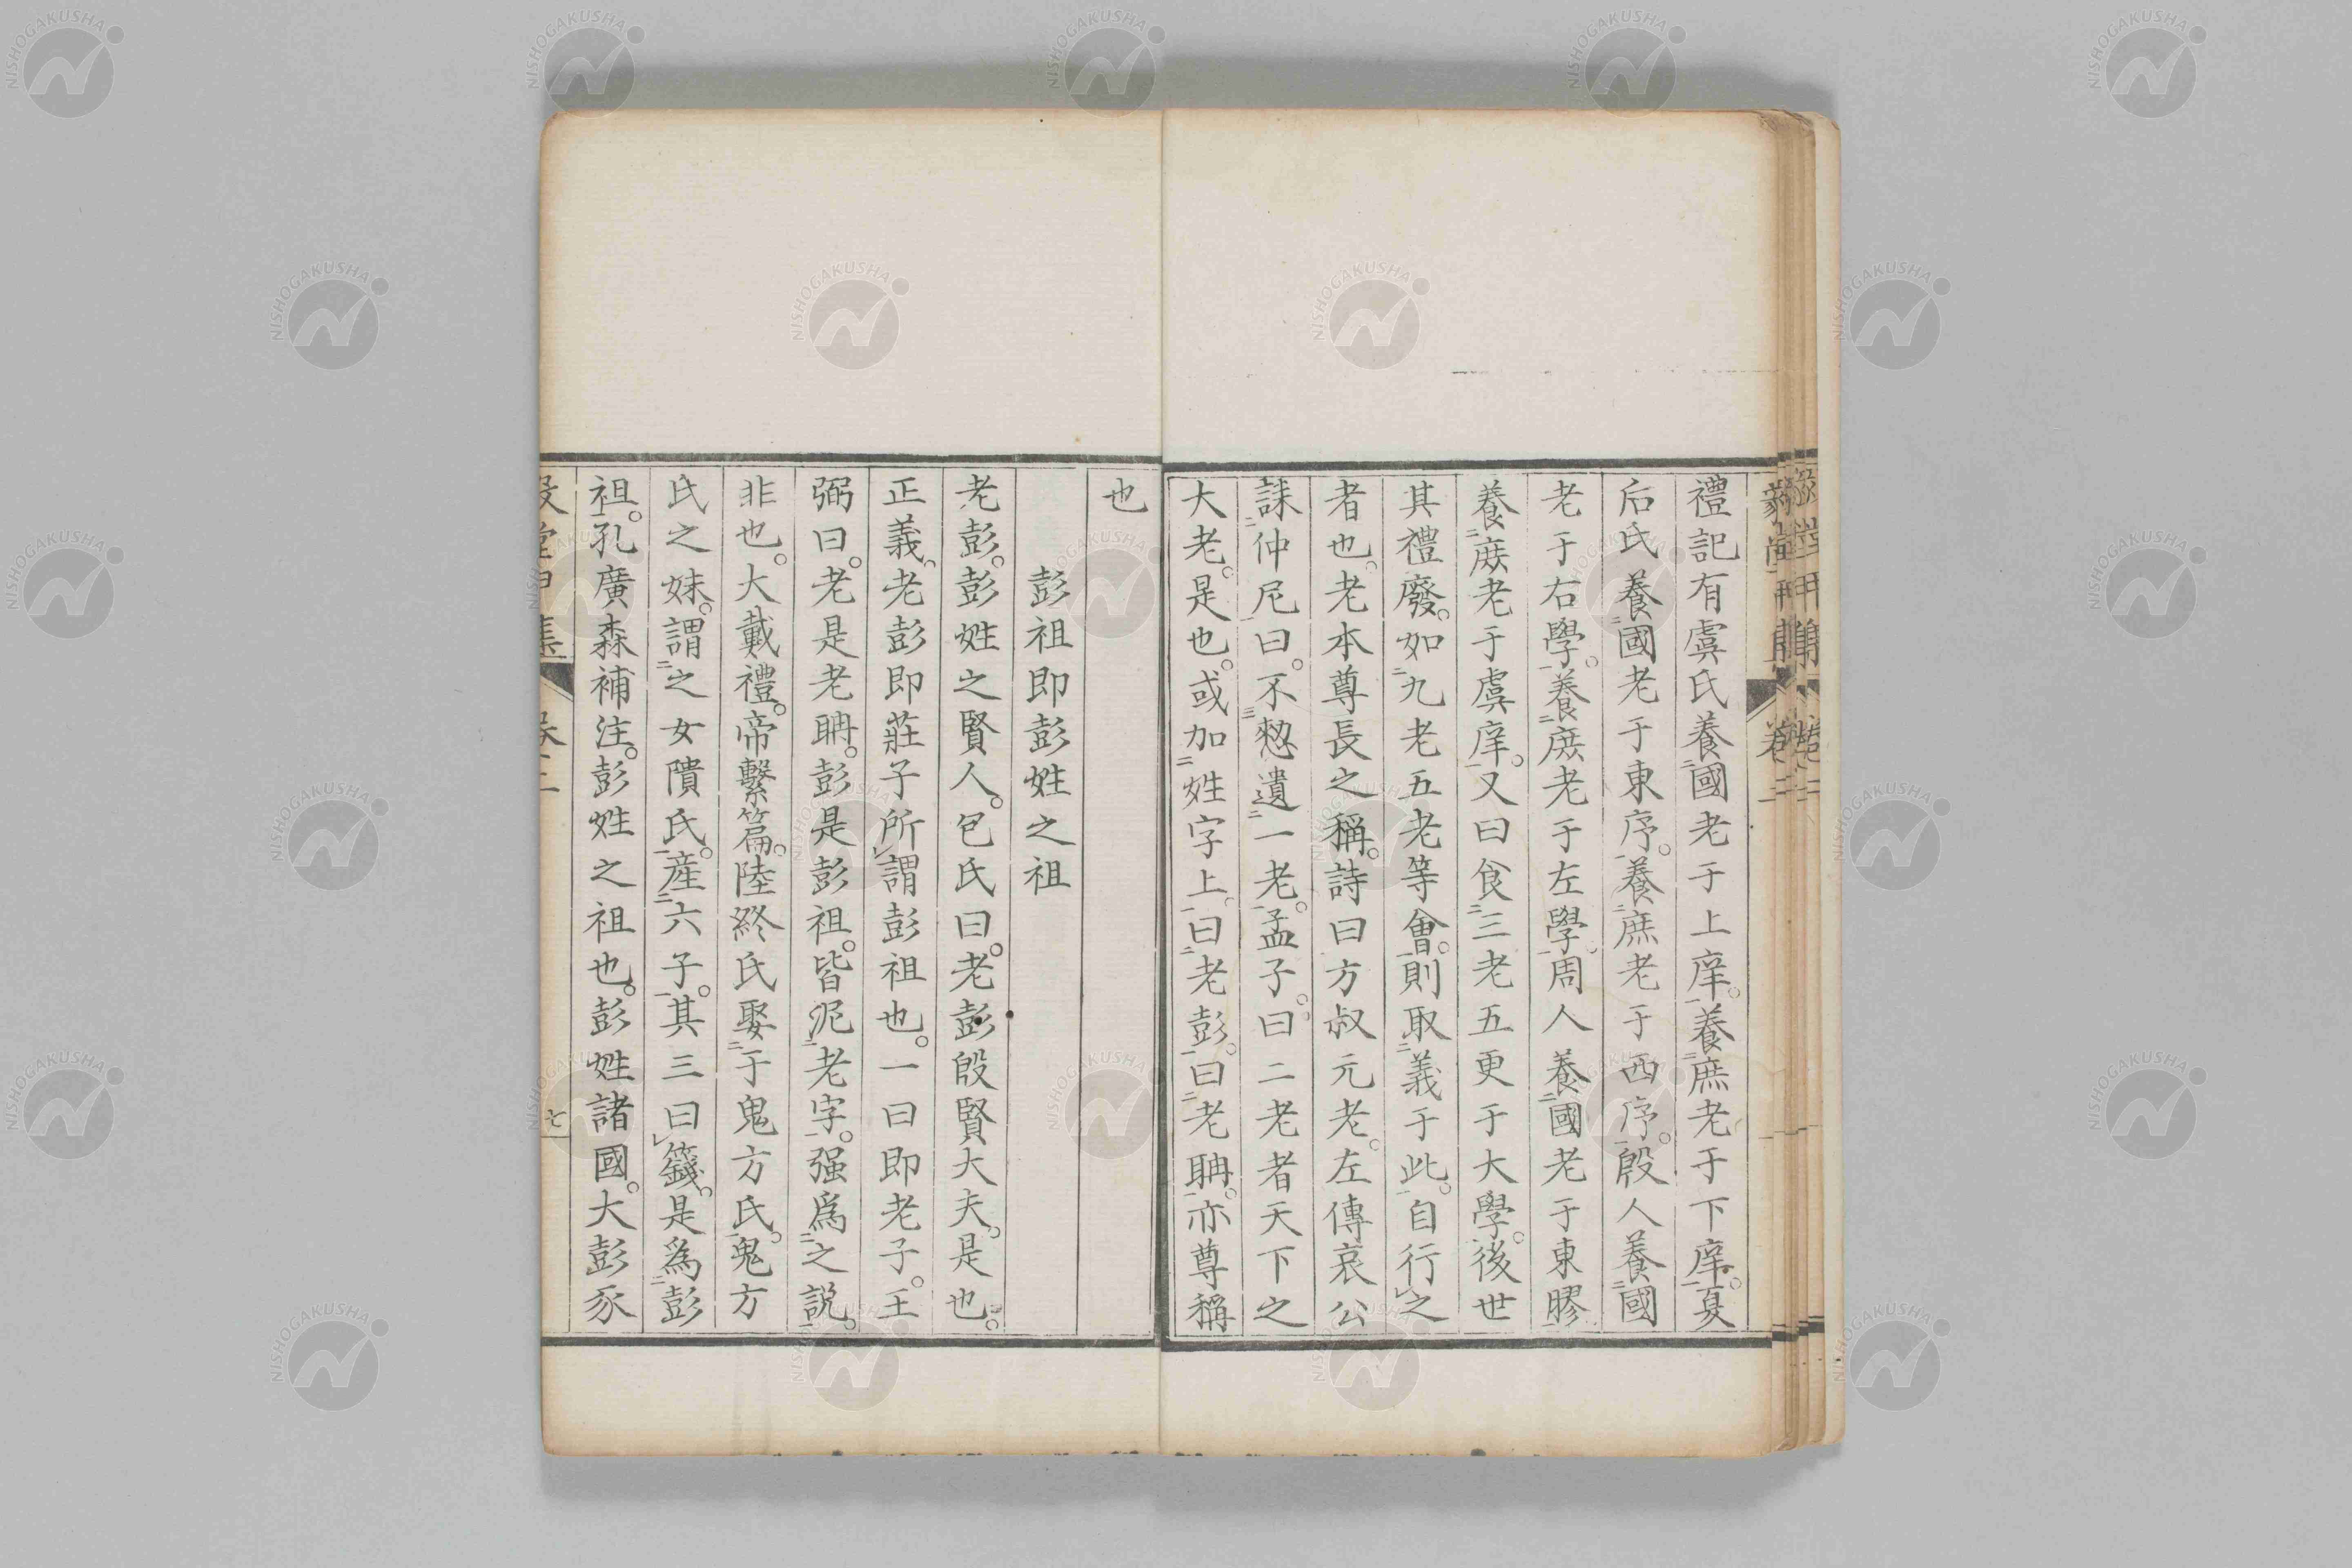 禮記有虞氏養國老于上庠。養庶老于下庠。夏
后氏養國老于東序。養庶老于西序。殷人養國
老于右學。養庶老于左學。周人養國老于東膠
養庶老于虞庠。又曰食三老五更于大學。後世
其禮廢。如九老五老等會。則取義于此。自行之
者也。老本尊長之稱。詩曰方叔元老。左傳哀公
誄仲尼曰。不憗遺一老。孟子。曰二老者天下之
大老。是也。或加姓字上。曰老彭。曰老聃。亦尊稱
也
彭祖即彭姓之祖
老彭。彭姓之賢人。包氏曰。老彭殷賢大夫。是也。
正義。老彭即莊子所謂彭祖也。一曰即老子。王
弼曰。老是老聃。彭是彭祖。皆泥老字。强爲之說。
非也。大戴禮。帝繫篇。陸終氏娶于鬼方氏。鬼方
氏之妹。謂之女隤氏。產六子。其三曰籛。是爲彭
祖。孔廣森補注。彭姓之祖也。彭姓諸國。大彭豕
七
NISHOGAKUSHA